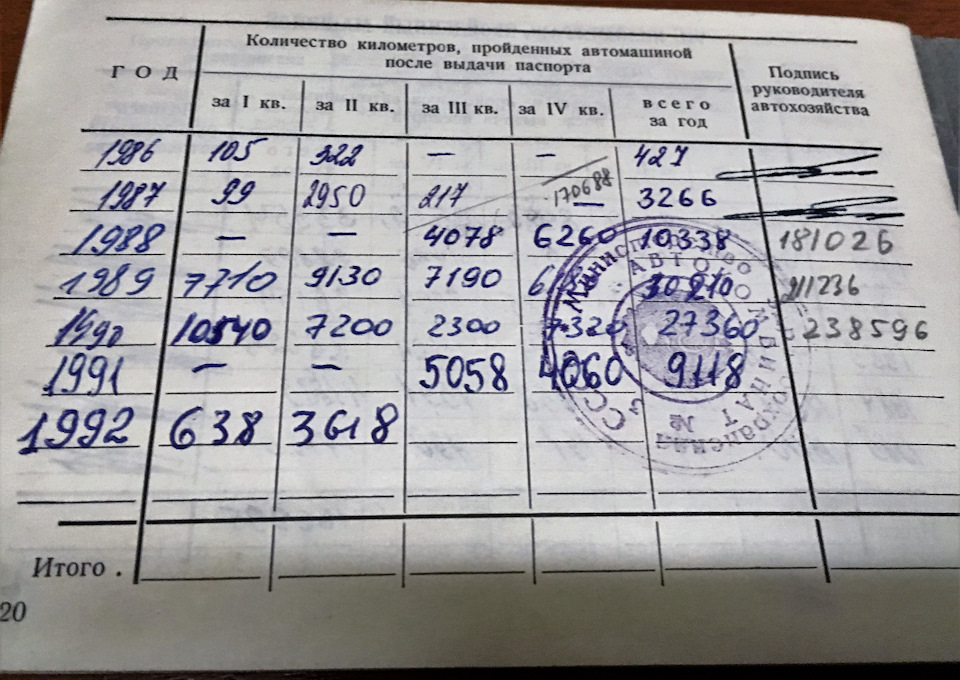 Количество километров, пройденных автомашиной
после выдачи паспорта
ГОД
Подпись
руководителя
автохозяйства
за I кв. за II кв. за III кв. за IV кв. всего
за год
1986 105 322 — — 427
170688
1987 99 2950 217 — 3266
1988 — — 4078 6260 10338 181026
1989 7710 9130 7190 211236
1990 10540 7200 2300 7320 27360 238596
1991 — — 5058 4060 9118
1992 638 3618
Итого .
20
Министерство
АВТОКОМБИНАТ
№
СССР